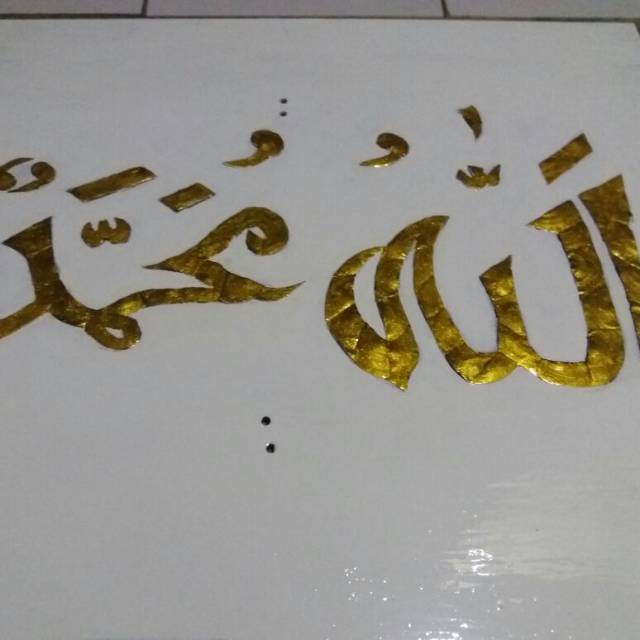 اَللّٰهُ مُحَمَّدٌ